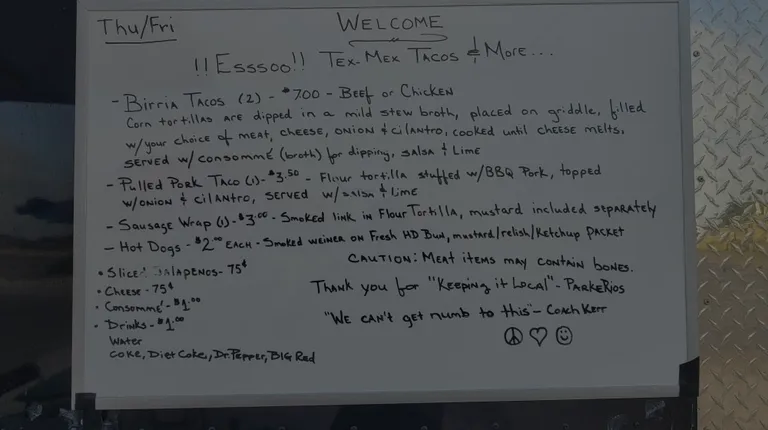 Thu/Fri
WELCOME
!!Esssoo!! TEX-MEX TACOS & MORE...
- BIRRIA TACOS (2) - $7.00 - BEEF or CHICKEN
Corn tortillas are dipped in a mild stew broth, placed on griddle, filled
w/your choice of meat, cheese, onion & cilantro, cooked until cheese melts,
served w/ consommé (broth) for dipping, salsa & lime
- Pulled Pork Taco (1) - $3.50 - Flour tortilla stuffed w/BBQ Pork, topped
w/onion & cilantro, served w/salsa & lime
- Sausage Wrap (1) - $3.00 - Smoked link in Flour Tortilla, mustard included separately
- Hot Dogs - $2.00 EACH - Smoked weiner on Fresh HD Bun, mustard/relish/Ketchup PACKET
• Sliced JALAPENOS - 75¢
CAUTION: MEAT ITEMS MAY CONTAIN BONES.
• Cheese - 75¢
THANK you for "KEEPING it LOCAL" - PARKERIOS
• Consommé - $1.00
"WE CAN'T get NUMB to THIS" - COACH KERR
• Drinks - $1.00
WATER
COKE, DIET COKE, DR. PEPPER, BIG RED